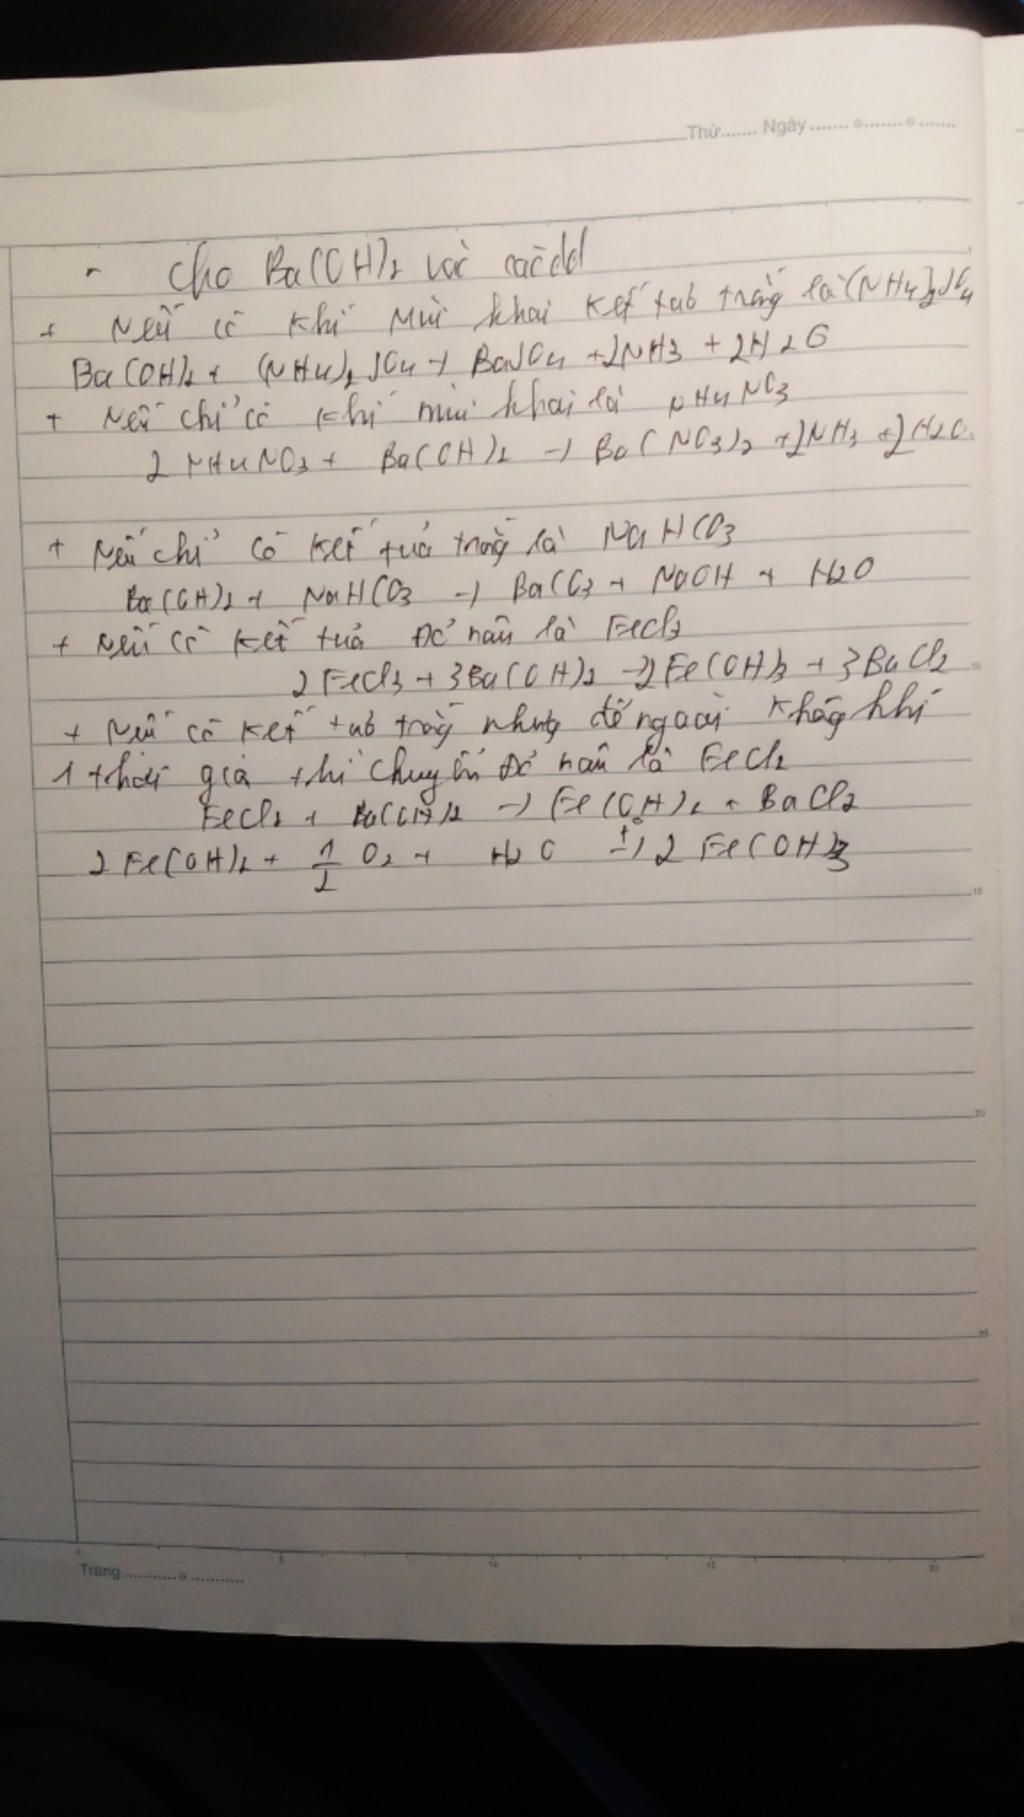 Thứ....... Ngày ....... o ....... o .......
- Cho Ba(OH)2 vào các dd
+ Nếu có khí mùi khai kết tủa trắng là (NH4)2SO4
Ba(OH)2 + (NH4)2SO4 → BaSO4 + 2NH3 + 2H2O
+ Nếu chỉ có khí mùi khai là NH4NO3
2NH4NO3 + Ba(OH)2 → Ba(NO3)2 + 2NH3 + 2H2O
+ Nếu chỉ có kết tủa trắng là NaHCO3
Ba(OH)2 + NaHCO3 → BaCO3 + NaOH + H2O
+ Nếu có kết tủa đỏ nâu là FeCl3
2FeCl3 + 3Ba(OH)2 → 2Fe(OH)3 + 3BaCl2
+ Nếu có kết tủa trắng nhưng để ngoài không khí
1 thời gia thì chuyển đỏ nâu là FeCl2
FeCl2 + Ba(OH)2 → Fe(OH)2 + BaCl2
2Fe(OH)2 + 1/2 O2 + H2O t°→ 2Fe(OH)3
Trang ........... o ...........